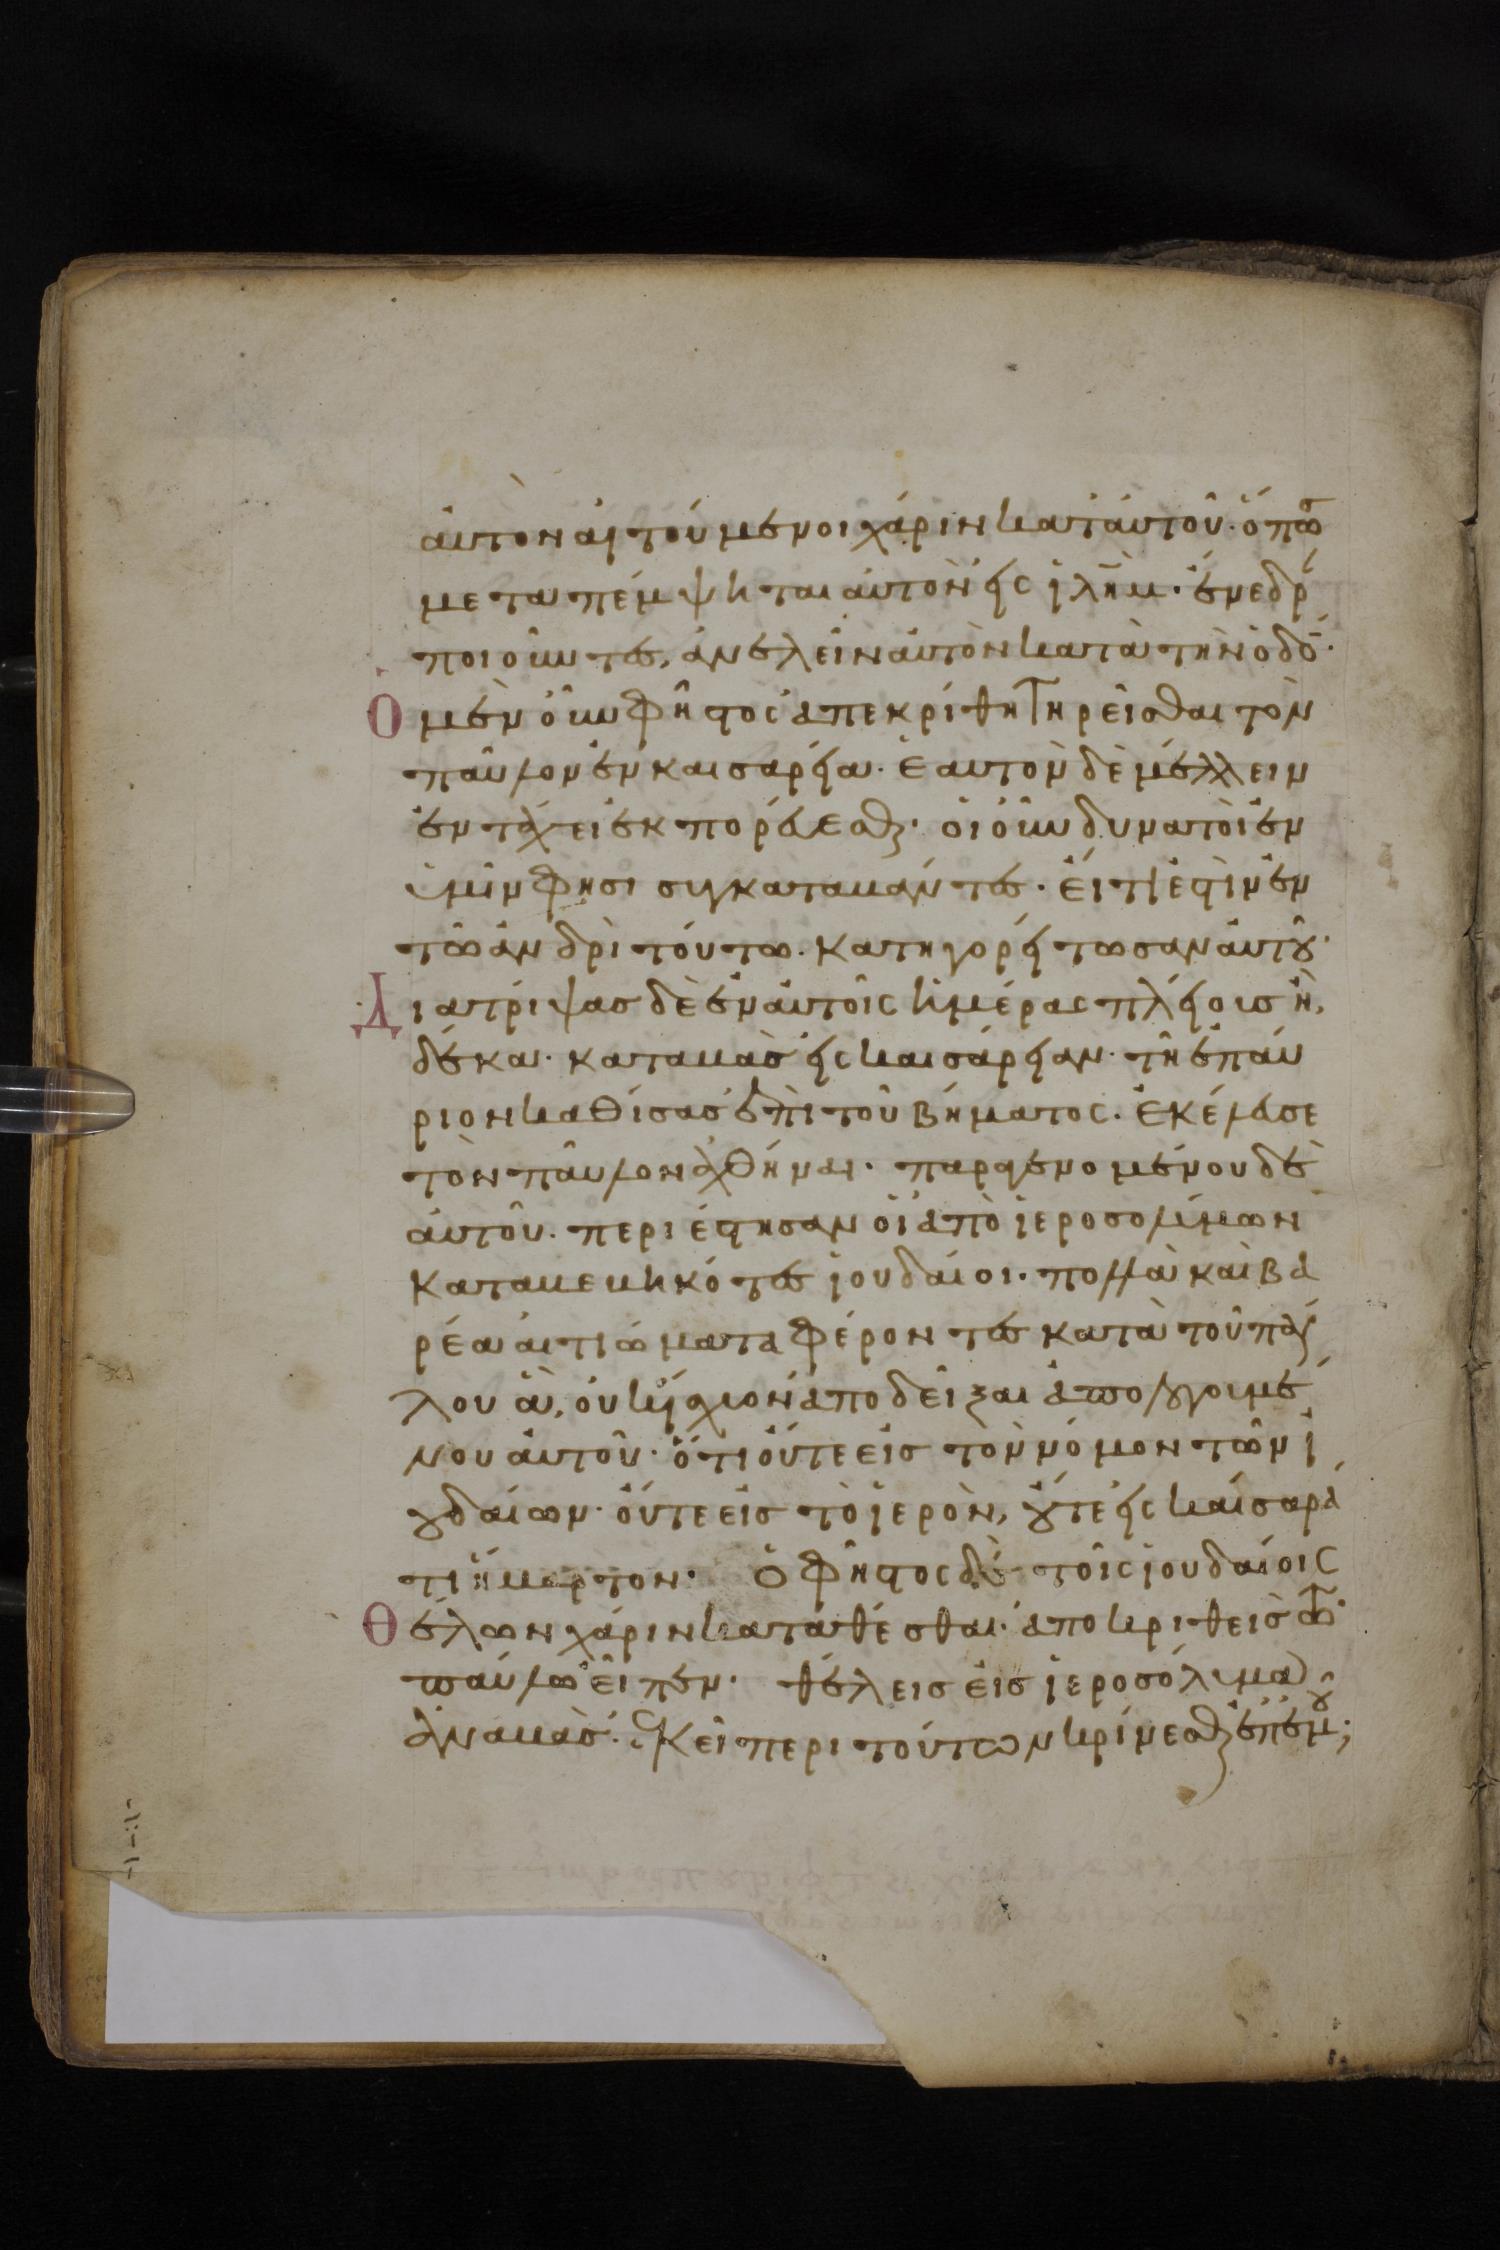 αυτὸν αἰτούμενοι χάριν κατ' αὐτοῦ· ὅπως
μεταπέμψηται αὐτὸν εἰς ἰλῆμ· ἐνέδρ
ποιοῦντες, ἀνελεῖν αὐτὸν κατὰ τὴν ὁδὸ·
Ὁ μὲν οὖν φῆστος ἀπεκρίθη τηρεῖσθαι τὸν
παῦλον ἐν καισαρεία· ἑαυτὸν δὲ μέλλειν
ἐν τάχει ἐκπορεύεσθαι· οἱ οὖν δυνατοὶ ἐν
ὑμῖν φησι συγκαταβάντες· εἴ τι ἐστὶν ἐν
τῶ ἀνδρὶ τούτω· κατηγορείτωσαν αὐτοῦ·
Διατρίψας δὲ ἐν αὐτοῖς ἡμέρας πλείους ἢ,
δέκα· καταβὰς εἰς καισάρειαν· τῆ ἐπαύ
ριον καθίσας ἐπὶ τοῦ βήματος· ἐκέλευσε
τὸν παῦλον ἀχθῆναι· παραγενομένου δὲ
αὐτοῦ· περιέστησαν οἱ ἀπὸ ἱεροσολύμων
καταβεβηκότες ἰουδαίοι· πολλὰ καὶ βα
ρέα αἰτιώματα φέροντες κατὰ τοῦ παύ
λου ἃ, οὐκ ἴσχυον ἀποδεῖξαι ἀπολογουμέ
νου αὐτοῦ· ὅτι οὔτε εἰς τὸν νόμον τῶν ἰ
ουδαίων· οὔτε εἰς τὸ ἱερὸν, οὔτε εἰς καίσαρά
τι ἥμαρτον· ὁ φῆστος δὲ τοῖς ἰουδαίοις
Θέλων χάριν καταθέσθαι· ἀποκριθεὶς τῶ
παύλω εἶπεν· θέλεις εἰς ἱεροσόλυμα
ἀναβὰς· ἐκεῖ περὶ τούτων κρίνεσθαι ἐπ' ἐμοῦ;